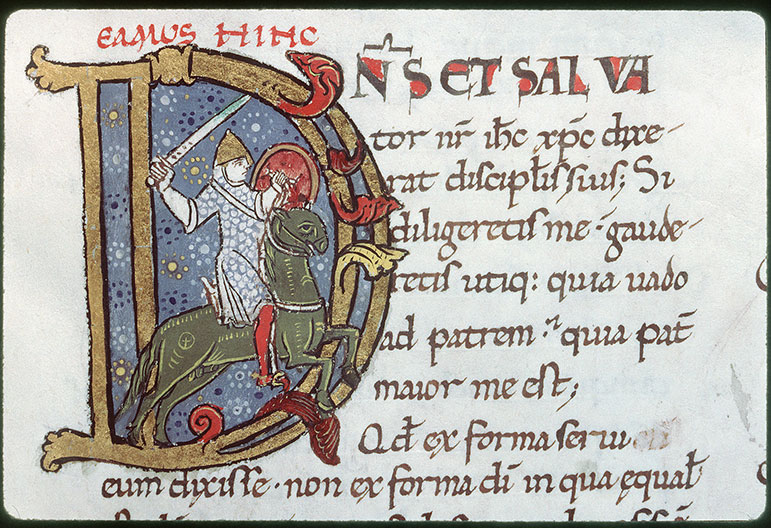 EAMUS HINC
DN̄S ET SALVA
tor nr̄ ih̄c xp̄c dixe-
rat discipłis suis; Si
diligeretis me · gaude-
retis utiq: quia uado
ad patrem · ⁊ quia pat̄
maior me est;
Qd̄ ex forma serui
eum dixisse · non ex forma dī in qua ęqual̄